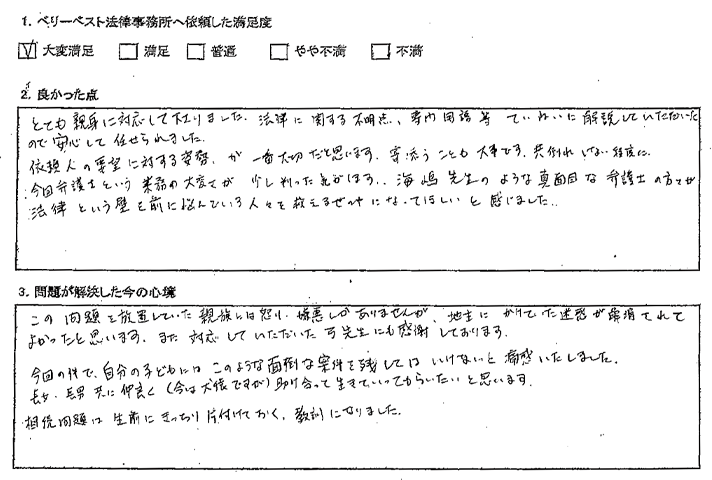 1. ベリーベスト法律事務所へ依頼した満足度
☑ 大変満足 □ 満足 □ 普通 □ やや不満 □ 不満
2. 良かった点
とても親身に対応して下さりました。法律に関する不明点、専門用語等 ていねいに解説していただいた
ので安心して任せられました。
依頼人の要望に対する姿勢、が一番大切だと思います。寄添うことも大事です。共倒れしない程度に。
今回弁護士という業務の大変さが少し判った気がします。海嶋先生のような真面目な弁護士の方々が
法律という壁を前に悩んでいる人々を救える になってほしいと感じました。
3. 問題が解決した今の心境
この問題を放置していた親族には怒り、嫌悪しかありませんが、地主にかけていた迷惑が解消されて
よかったと思います。また対応していただいた 先生にも感謝しております。
今回の件で、自分の子どもにはこのような面倒な案件を残してはいけないと痛感いたしました。
長女・長男共に仲良く(今は犬猿ですが)助け合って生きていってもらいたいと思います。
相続問題は生前にきっちり片付けておく、教訓になりました。